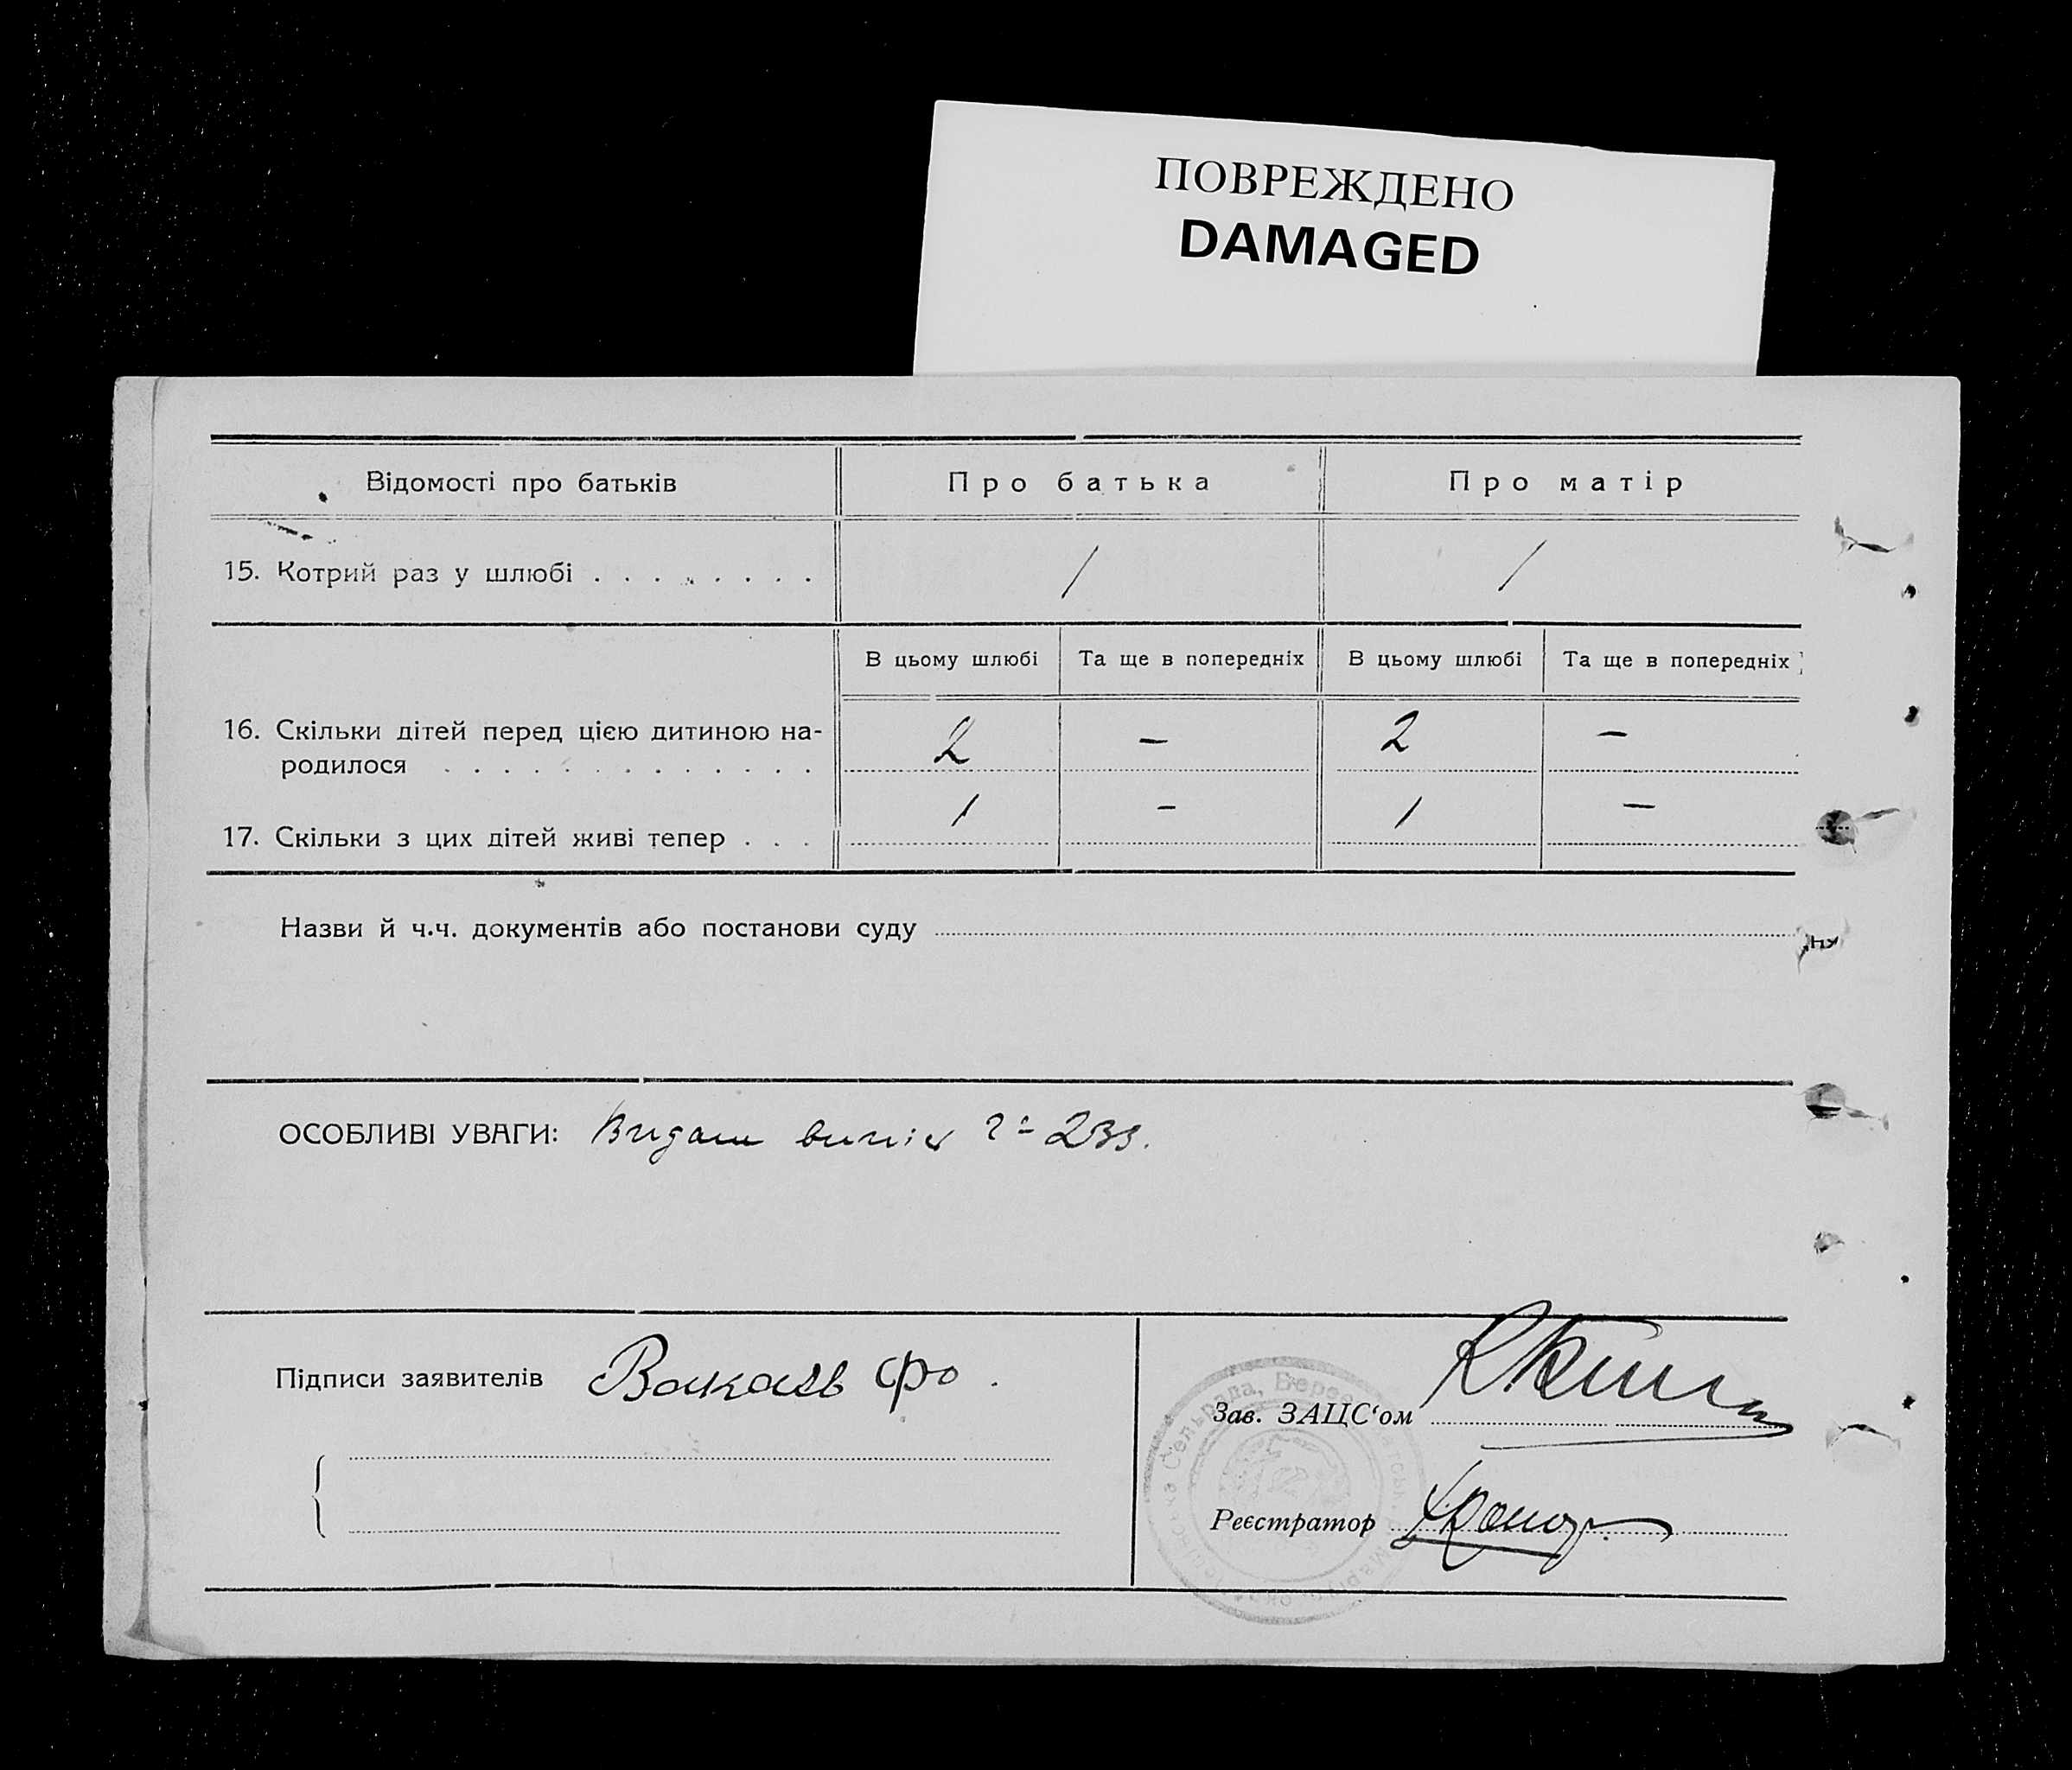 ПОВРЕЖДЕНО
DAMAGED
Відомості про батьків
Про батька
Про матір
15. Котрий раз у шлюбі . . . . . . . .
/
/
В цьому шлюбі
Та ще в попередніх
В цьому шлюбі
Та ще в попередніх
16. Скільки дітей перед цією дитиною на-
родилося . . . . . . . . . . . . .
2
—
2
—
17. Скільки з цих дітей живі тепер . . .
1
–
1
—
Назви й ч.ч. документів або постанови суду
ОСОБЛИВІ УВАГИ: Видан
Підписи заявителів
Зав. ЗАЦС‘ом
Реєстратор
Сельрада,